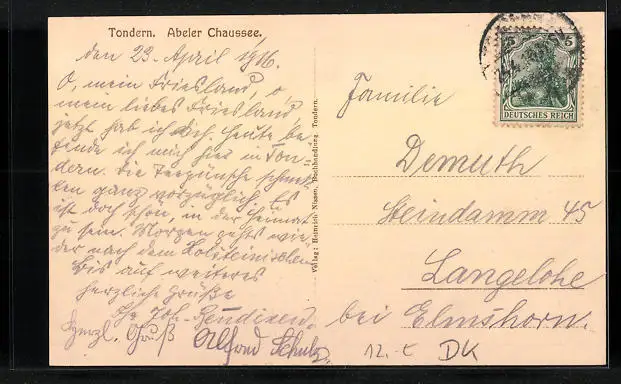 Tondern. Abeler Chaussee.
den 23. April 1916.
O, mein Friesland, o
mein liebes Friesland,
jetzt hab ich dich. Heute be-
finde ich mich hier in Ton-
dern. Die Teepünsche schmek-
ken ganz vorzüglich. Es
ist doch schön, in der Heimat
zu sein. Morgen gehts wie-
der nach dem Holsteinischen.
Bis auf weiteres
herzliche Grüße
Joh.
Herzl. Gruß Alfred Schulz
Verlag: Heinrich Nissen, Buchhandlung, Tondern.
5 5
DEUTSCHES REICH
Familie
Demuth
Steindamm 45
Langelohe
bei Elmshorn.
12.- € DK